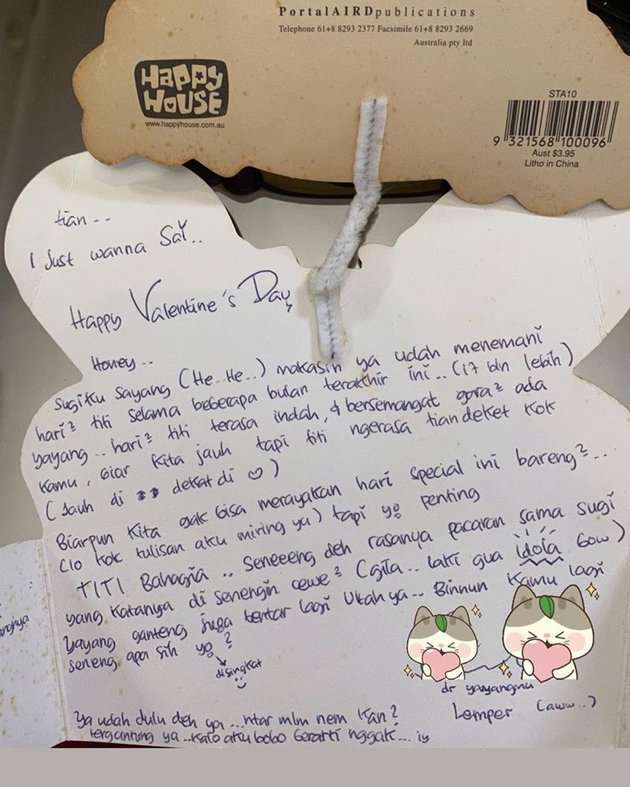 PortalAIRDpublications
Telephone 61+8 8293 2377 Facsimile 61+8 8293 2669
Australia pty ltd
Happy
House
www.happyhouse.com.au
STA10
9 321568 100096
Aust $3.95
Litho in China
tian - -
I Just wanna Say..
Happy Valentine's Day,
Honey ..
Sugiku Sayang (He..He..) makasih ya udah menemani
hari² titi selama beberapa bulan terakhir ini .. (17 bln lebih)
yayang .. hari² titi terasa indah, & bersemangat gara² ada
kamu, biar kita jauh tapi titi ngerasa tian deket kok
(Jauh di dekat di )
Biarpun kita gak bisa merayakan hari special ini bareng² ...
(lo kok tulisan aku miring ya) tapi yg penting
TITI Bahagia .. Seneeeng deh rasanya pacaran sama sugi
yang katanya di senengin cewe² (gila .. laki gua idola bow)
Yayang ganteng juga bentar lagi Ultah ya .. Binnun kamu lagi
seneng apa sih yg ?
disingkat
dr yayangmu
Lemper (aww..)
Ya udah dulu deh ya ...ntar mlm nem kan?
tergantung ya ..kalo aku bobo berarti nggak ....